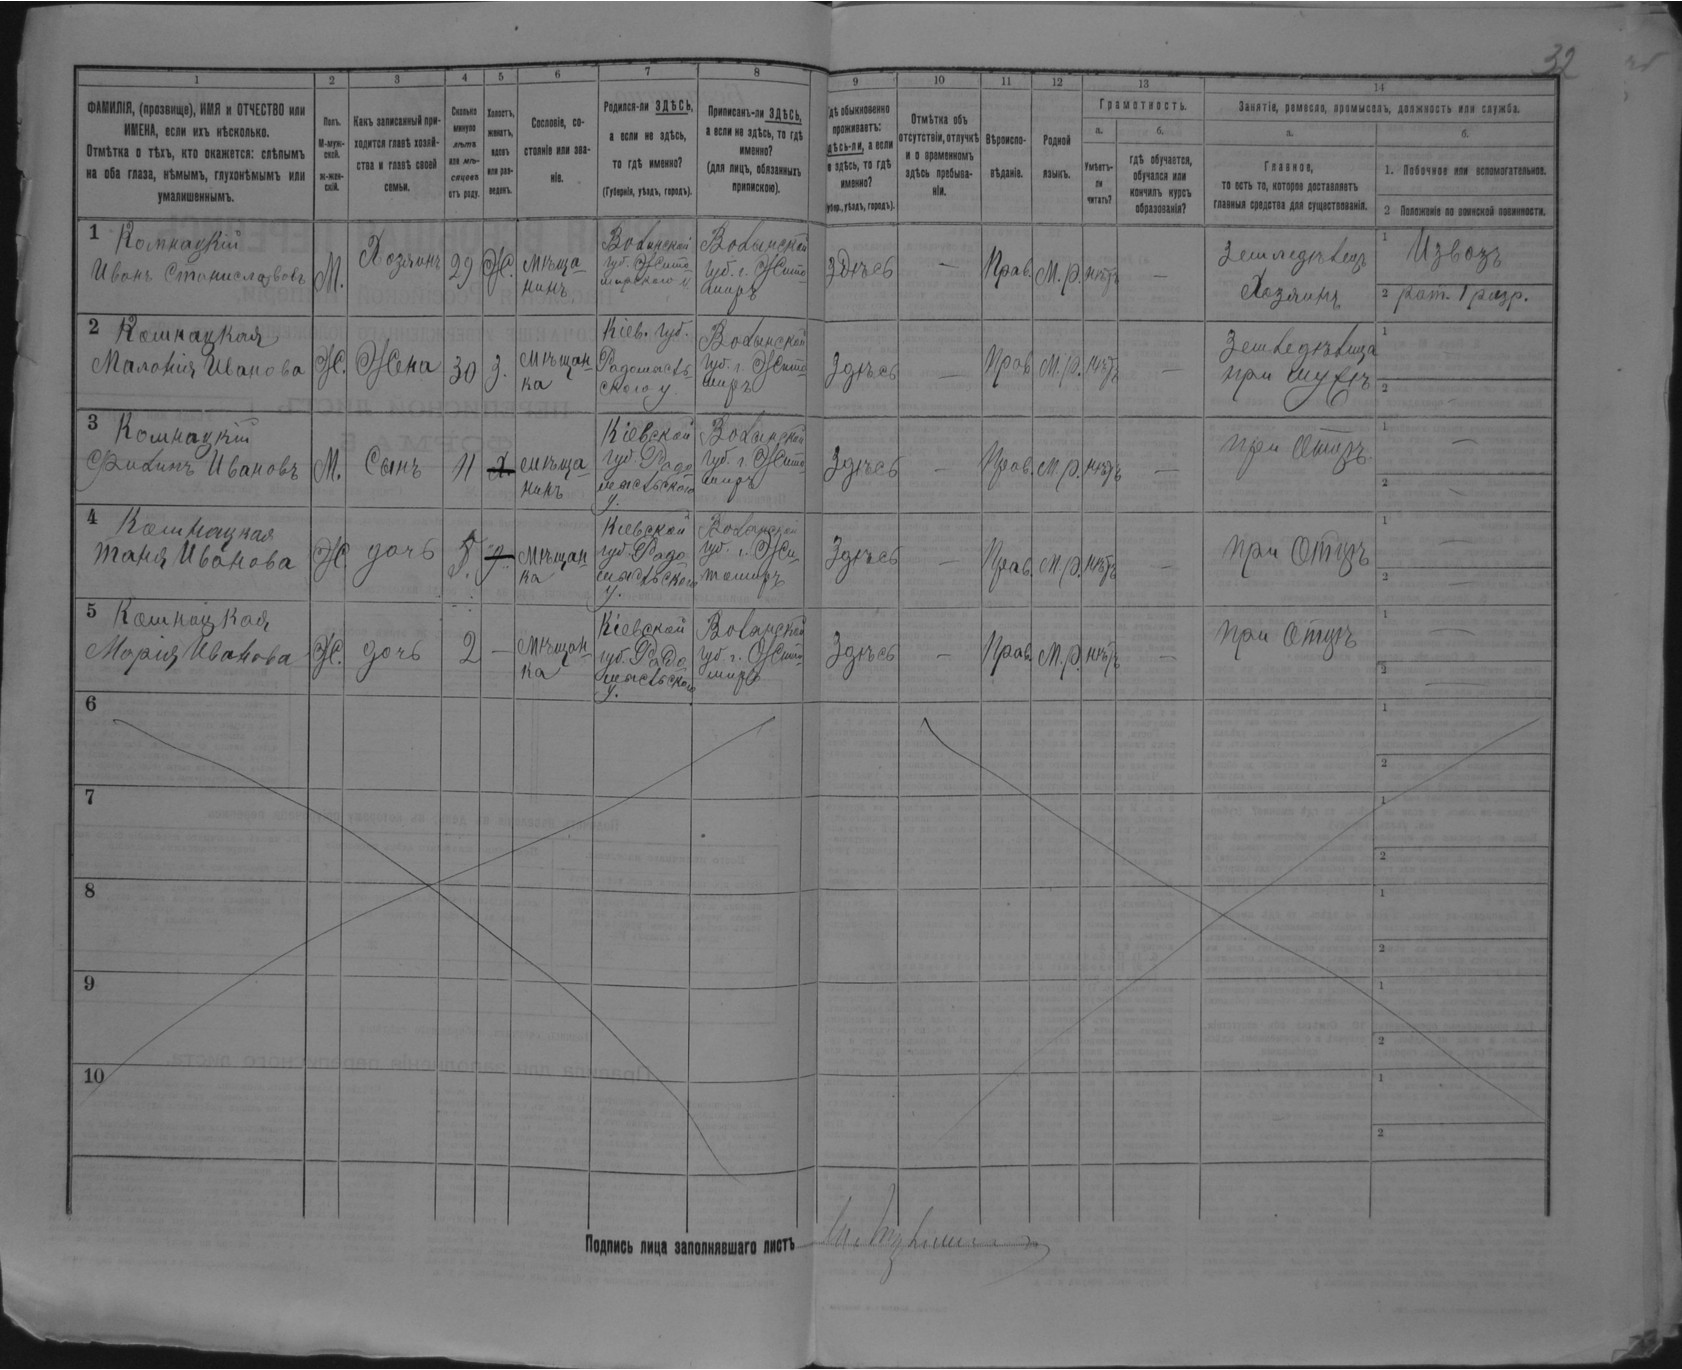 32
1 2 3 4 5 6 7 8 9 10 11 12 13 14
ФАМИЛІЯ, (прозвище), ИМЯ и ОТЧЕСТВО или
ИМЕНА, если ихъ нѣсколько.
Отмѣтка о тѣхъ, кто окажется: слѣпымъ
на оба глаза, нѣмымъ, глухонѣмымъ или
умалишеннымъ.
Полъ.
М-муж-
ской.
ж-жен-
скій.
Какъ записанный при-
ходится главѣ хозяй-
ства и главѣ своей
семьи.
Сколько
минуло
лѣтъ
или мѣ-
сяцевъ
отъ роду.
Холостъ,
женатъ,
вдовъ
или раз-
веденъ.
Сословіе, со-
стояніе или зва-
ніе.
Родился-ли ЗДѢСЬ,
а если не здѣсь,
то гдѣ именно?
(Губернія, уѣздъ, городъ).
Приписанъ-ли ЗДѢСЬ,
а если не здѣсь, то гдѣ
именно?
(для лицъ, обязанныхъ
припискою).
Гдѣ обыкновенно
проживаетъ:
здѣсь-ли, а если
не здѣсь, то гдѣ
именно?
(Губер., уѣздъ, городъ).
Отмѣтка объ
отсутствіи, отлучкѣ
и о временномъ
здѣсь пребыва-
ніи.
Вѣроиспо-
вѣданіе.
Родной
языкъ.
Грамотность.
а.
Умѣетъ-
ли
читать?
б.
гдѣ обучается,
обучался или
кончилъ курсъ
образованія?
Занятіе, ремесло, промыселъ, должность или служба.
а.
Главное,
то есть то, которое доставляетъ
главныя средства для существованія.
б.
1. Побочное или вспомогательное.
2 Положеніе по воинской повинности.
1 Комнацкій
Иванъ Станиславовъ
М.
Хозяинъ
29
Ж.
Мѣща-
нинъ
Волынской
губ. Жито-
мирского у
Волынской
губ. г. Жито-
миръ
Здѣсь
—
Прав.
М. р.
нѣтъ
—
Земледѣлецъ
Хозяинъ
1 Извозъ
2 рат. 1 разр.
2 Комнацкая
Маланія Иванова
Ж.
Жена
30
З.
Мѣщан-
ка
Кіев. губ.
Радомысль-
ского у
Волынской
губ. г. Жито-
миръ
Здѣсь
—
Прав
М. р.
нѣтъ
—
Земледѣлица
при мужѣ
1
2
3 Комнацкій
Филипъ Ивановъ
М.
Сынъ
11
Х
Мѣща-
нинъ
Кіевской
губ. Радо-
мысльского
у.
Волынской
губ. г. Жито-
миръ
Здѣсь
—
Прав.
М. р.
нѣтъ
—
при Отцѣ
1 —
2 —
4 Комнацкая
Таня Иванова
Ж
дочь
5.
Мѣщан-
ка
Кіевской
губ. Радо-
мысльского
у.
Волынской
губ. г. Жи-
томиръ
Здѣсь
—
Прав.
М. р.
нѣтъ
—
при Отцѣ
1 —
2 —
5 Комнацкая
Марія Иванова
Ж.
дочь
2
—
Мѣщан-
ка
Кіевской
губ. Радо-
мысльского
у.
Волынской
губ. г. Жито-
миръ
Здѣсь
—
Прав.
М. р.
нѣтъ
—
при Отцѣ
1 —
2 —
6
1
2
7
1
2
8
1
2
9
1
2
10
1
2
Подпись лица заполнявшаго листъ